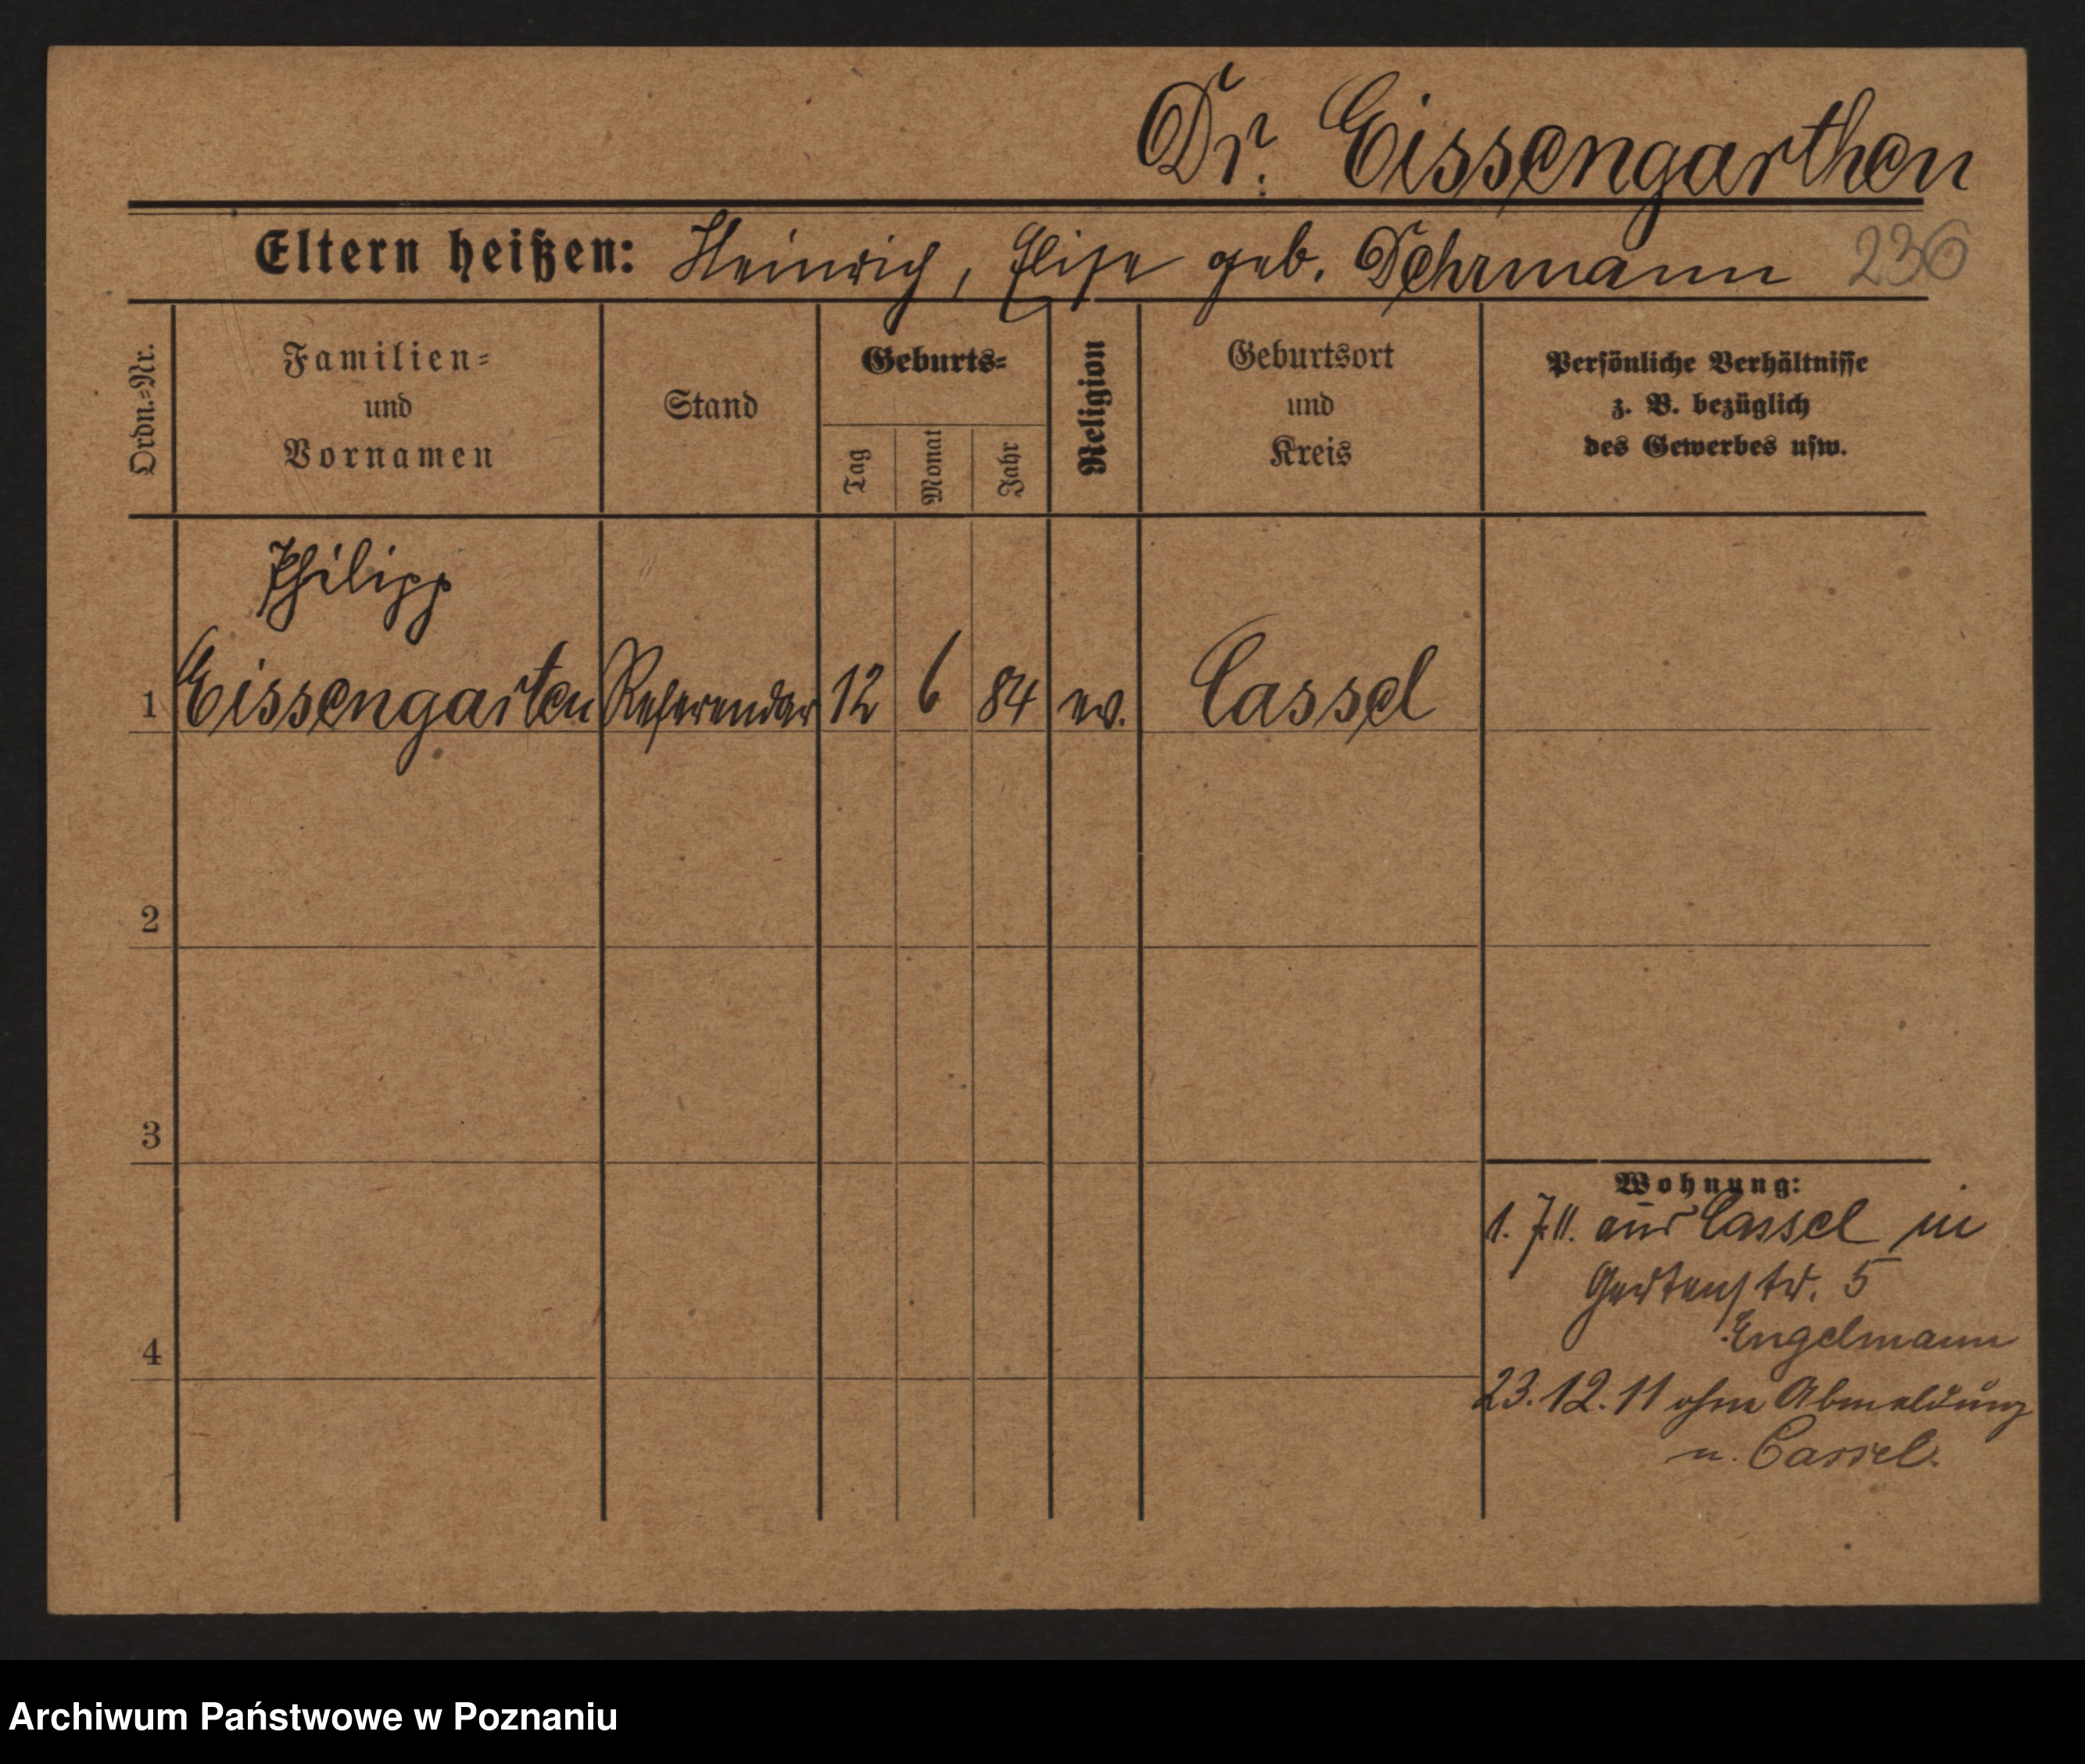 Dr. Eissengarthen
Eltern heißen: Heinrich, Elise geb. Dehrmann 236
Ordn.-Nr.
Familien-
und
Vornamen
Stand
Geburts-
Tag
Monat
Jahr
Religion
Geburtsort
und
Kreis
Persönliche Verhältnisse
z. B. bezüglich
des Gewerbes usw.
Philipp
1 Eissengarten Referendar 12 6 84 ev. Cassel
2
3
4
Wohnung:
1. 7 11. aus Cassel in
Gartenstr. 5
Engelmann
23.12.11 ohne Abmeldung
n. Cassel.
Archiwum Państwowe w Poznaniu